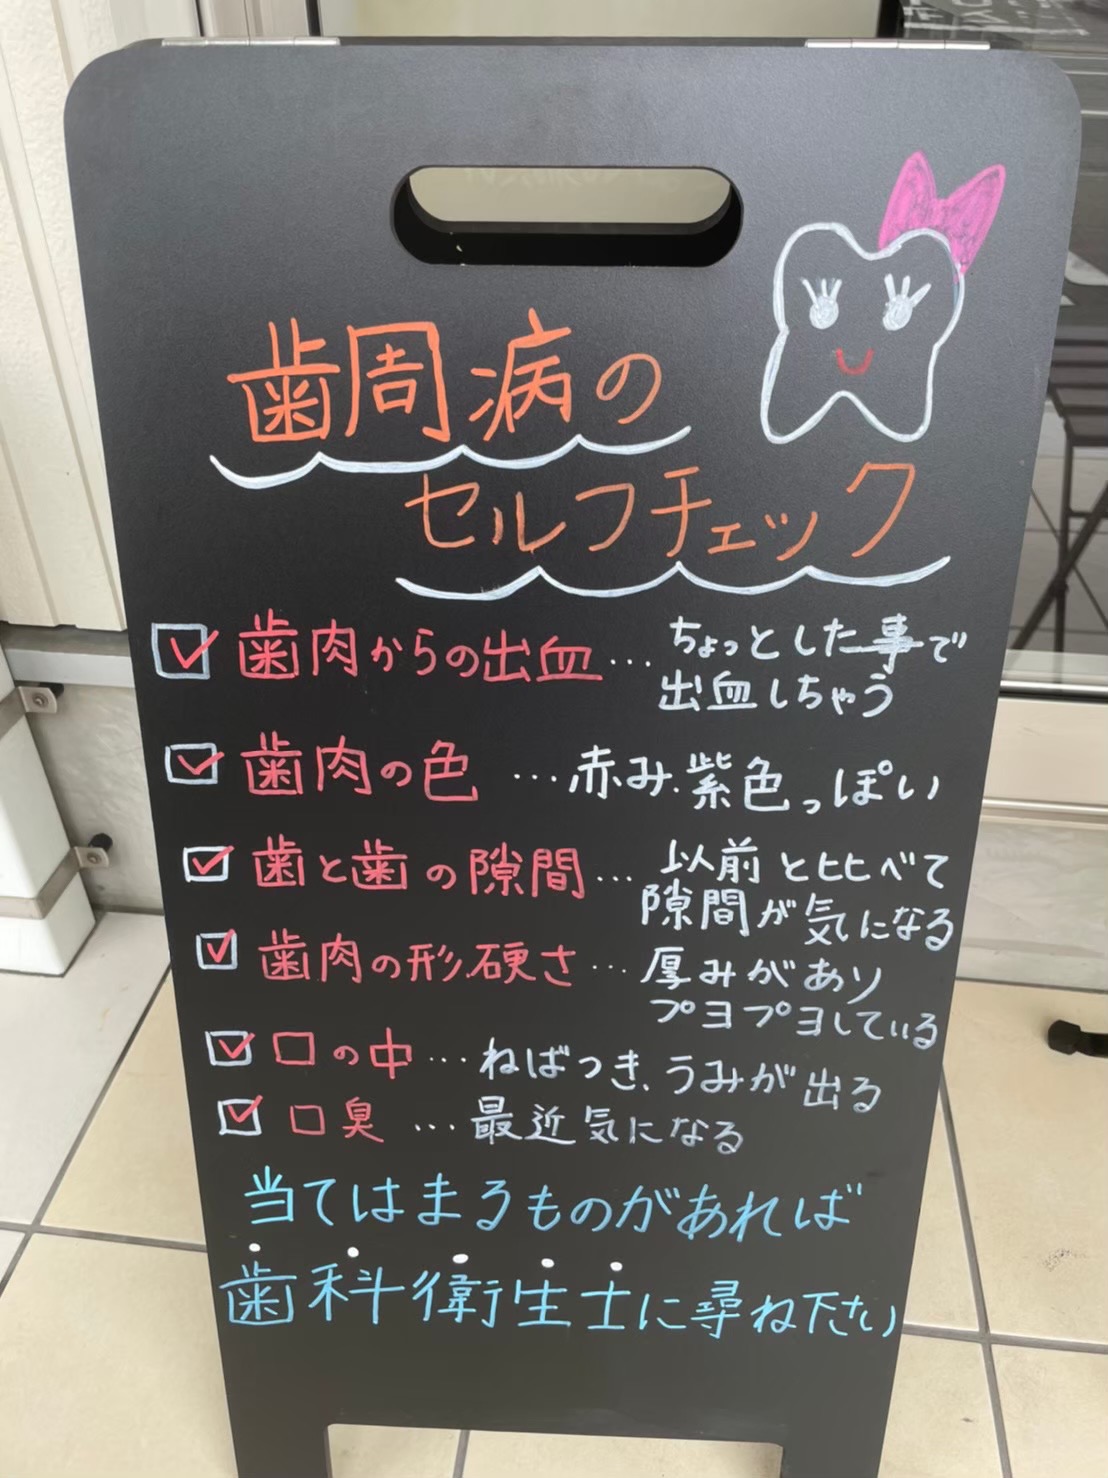 歯周病の
セルフチェック
歯肉からの出血…ちょっとした事で
出血しちゃう
歯肉の色…赤み.紫色っぽい
歯と歯の隙間…以前と比べて
隙間が気になる
歯肉の形.硬さ…厚みがあり
プヨプヨしている
口の中…ねばつき、うみが出る
口臭…最近気になる
当てはまるものがあれば
歯科衛生士に尋ね下さい